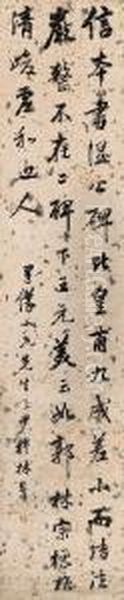 信本書溫公碑比皇甫九成差小而結法
嚴整不在二碑下王元美云如郭林宗標格
清峻虛和近人
大兄先生